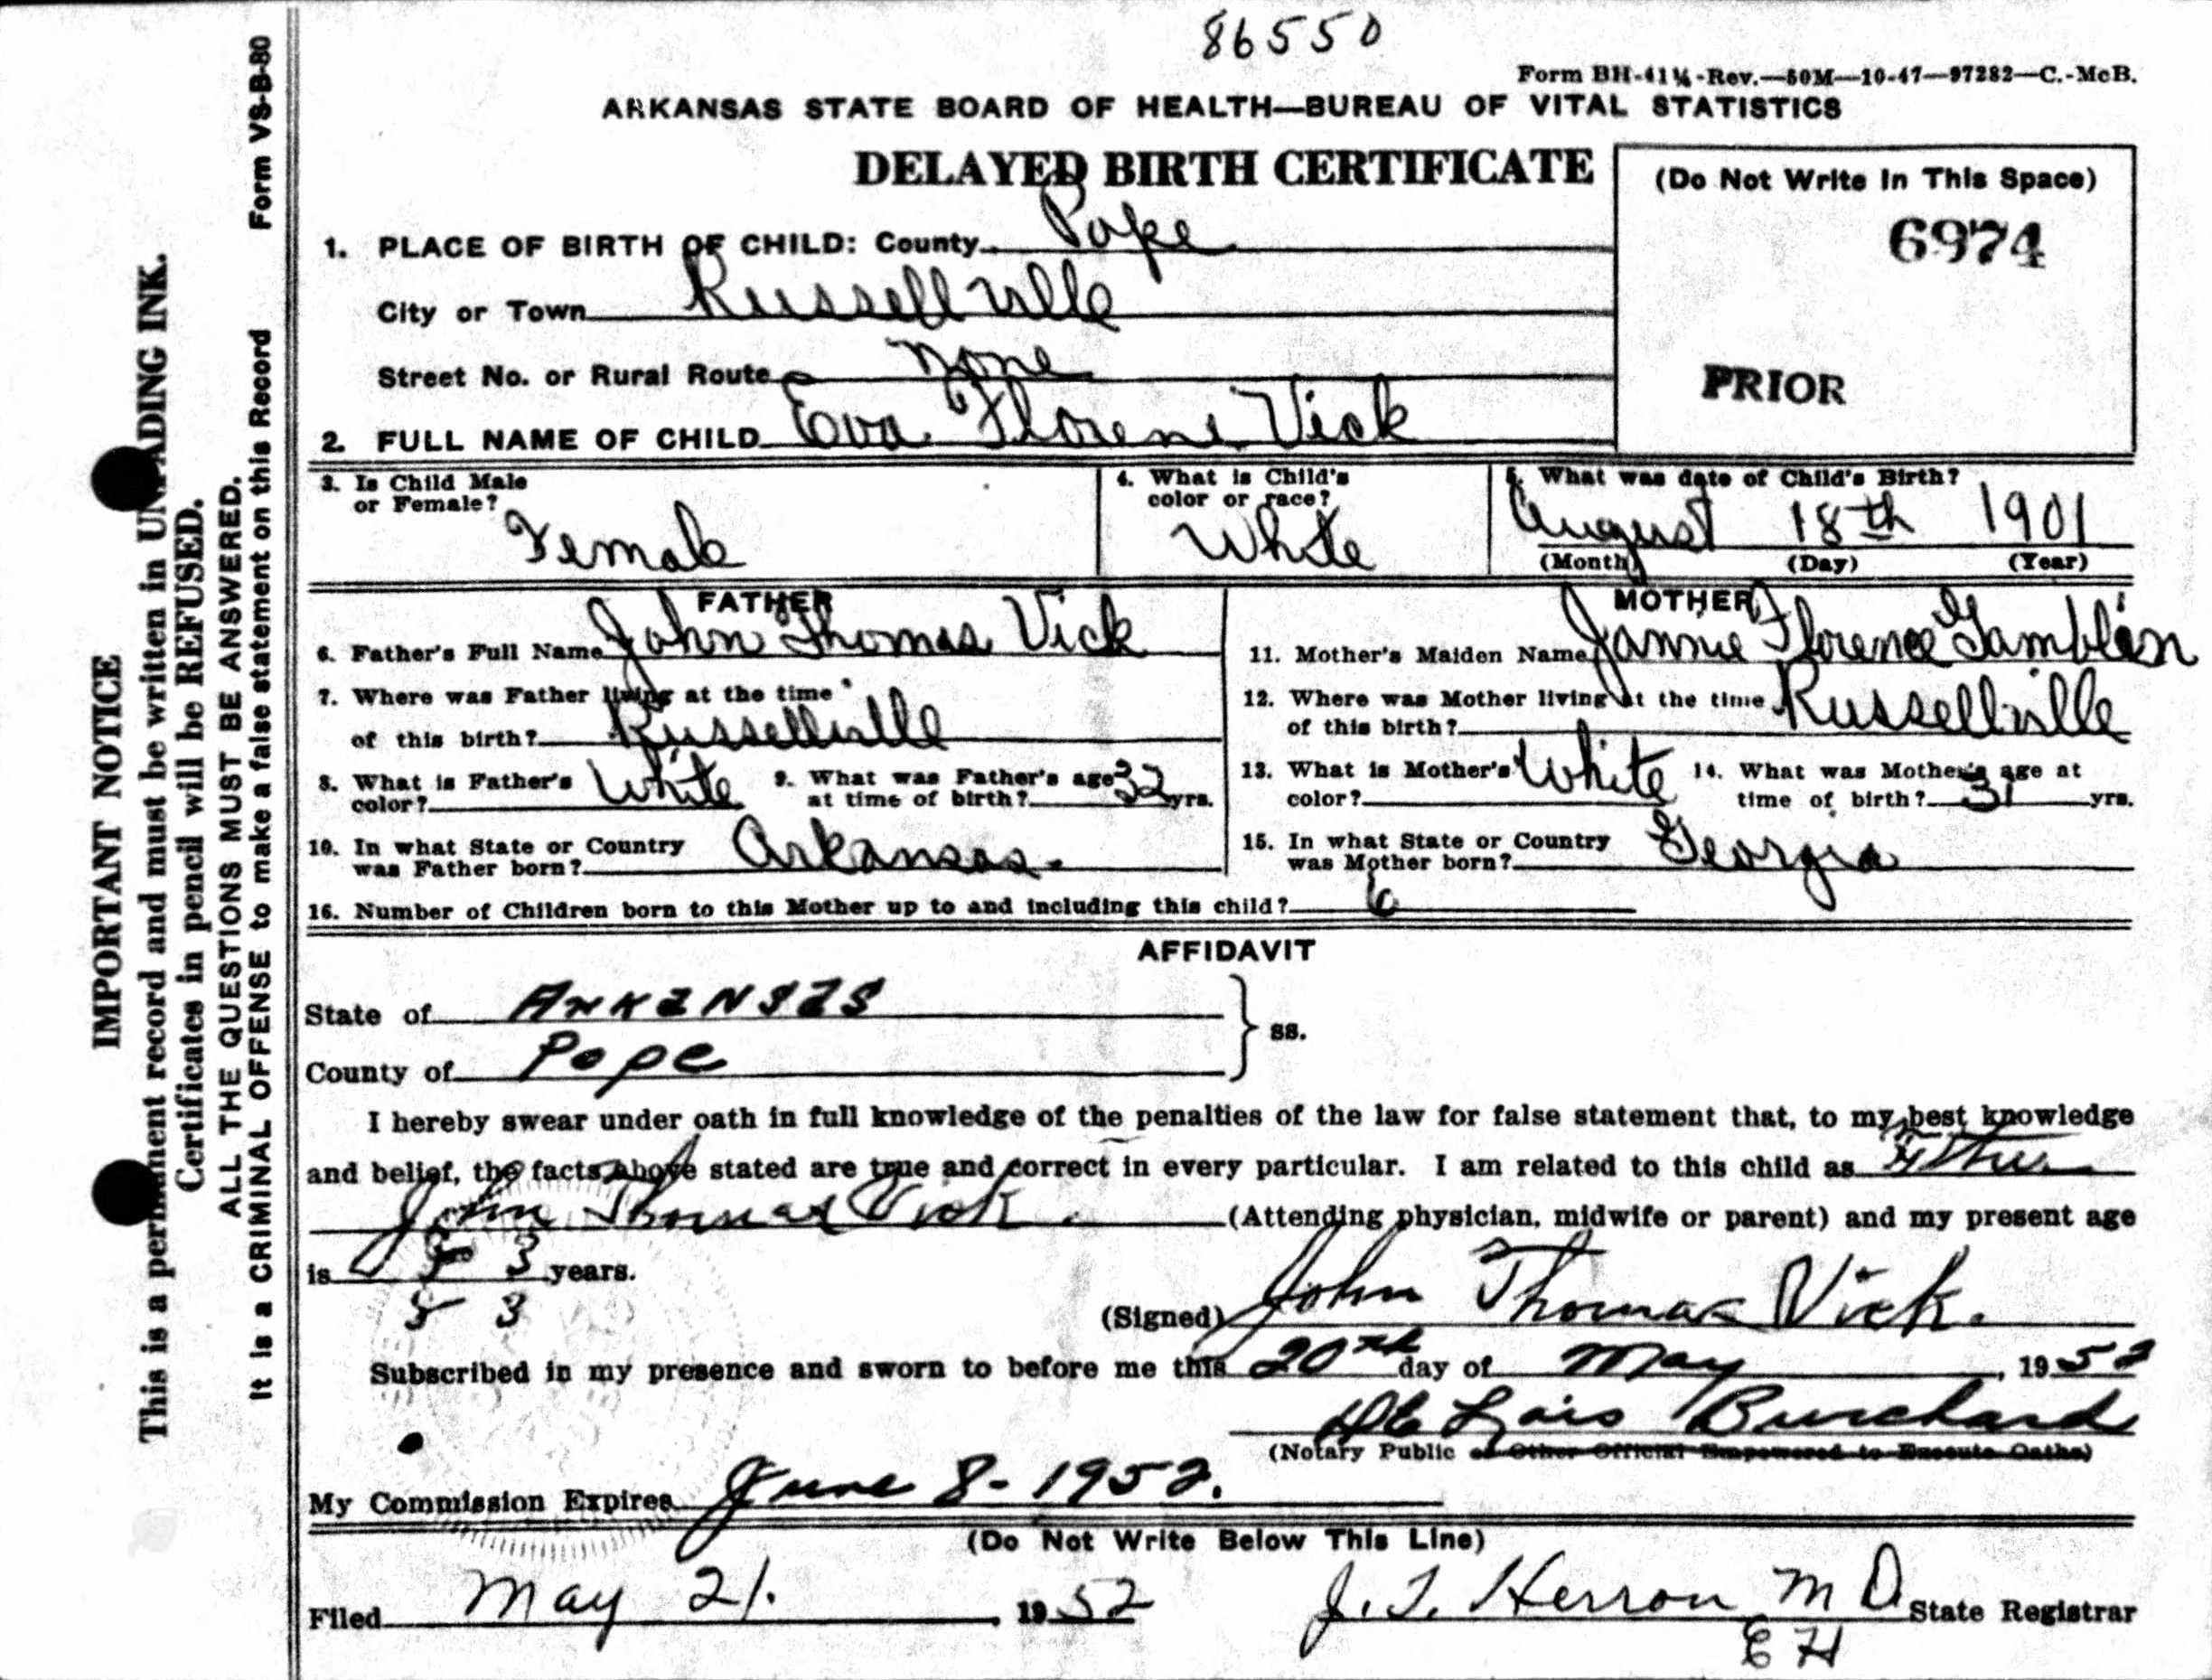 86550
Form BH-41¼-Rev.—50M—10-47—97282—C.-McB.
ARKANSAS STATE BOARD OF HEALTH—BUREAU OF VITAL STATISTICS
DELAYED BIRTH CERTIFICATE
(Do Not Write In This Space)
6974
PRIOR
1. PLACE OF BIRTH OF CHILD: County Pope
City or Town Russellville
Street No. or Rural Route None
2. FULL NAME OF CHILD Eva Florene Vick
3. Is Child Male
or Female? Female
4. What is Child's
color or race? White
5. What was date of Child's Birth?
August 18th 1901
(Month) (Day) (Year)
FATHER
6. Father's Full Name John Thomas Vick
7. Where was Father living at the time
of this birth? Russellville
8. What is Father's
color? White
9. What was Father's age
at time of birth? 32 yrs.
10. In what State or Country
was Father born? Arkansas
MOTHER
11. Mother's Maiden Name Jannie Florence Gamblin
12. Where was Mother living at the time
of this birth? Russellville
13. What is Mother's
color? White
14. What was Mother's age at
time of birth? 31 yrs.
15. In what State or Country
was Mother born? Georgia
16. Number of Children born to this Mother up to and including this child? 6
AFFIDAVIT
State of Arkansas
County of Pope
} ss.
I hereby swear under oath in full knowledge of the penalties of the law for false statement that, to my best knowledge
and belief, the facts above stated are true and correct in every particular. I am related to this child as Father
John Thomas Vick (Attending physician, midwife or parent) and my present age
is 83 years.
83
(Signed) John Thomas Vick.
Subscribed in my presence and sworn to before me this 20th day of May, 1952
Lois Burchard
(Notary Public or Other Official Empowered to Execute Oaths)
My Commission Expires June 8-1952.
(Do Not Write Below This Line)
Filed May 21. 1952 J. T. Herron M D State Registrar
E H
IMPORTANT NOTICE
This is a permanent record and must be written in UNFADING INK.
Certificates in pencil will be REFUSED.
ALL THE QUESTIONS MUST BE ANSWERED.
It is a CRIMINAL OFFENSE to make a false statement on this Record
Form VS-B-80